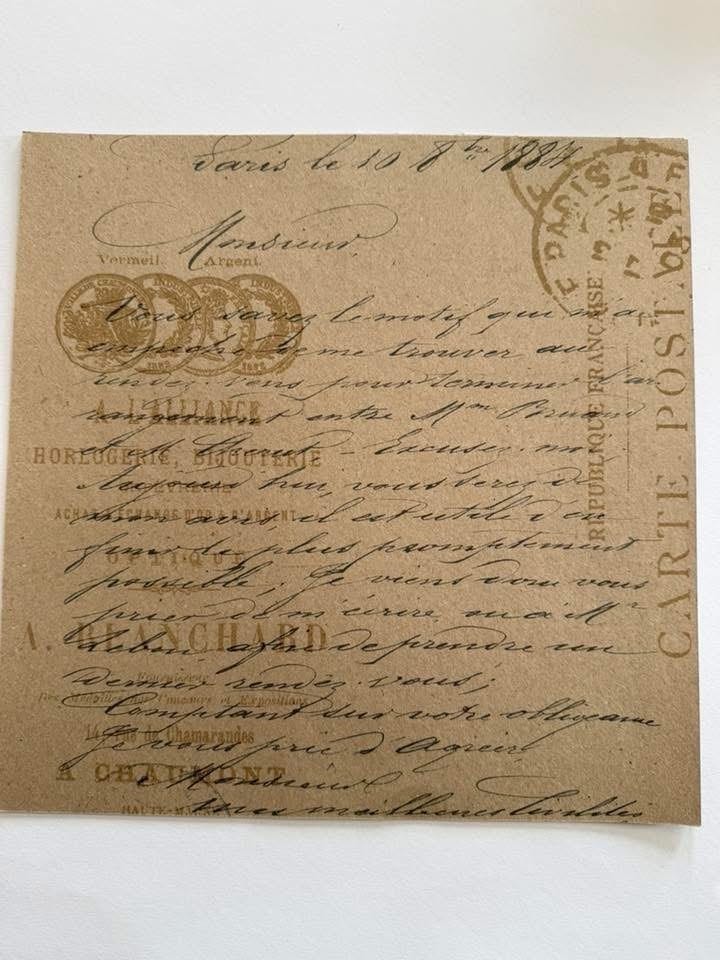 Paris le 10 8bre 1884
Monsieur
Vermeil. Argent.
Vous savez le motif qui m'a
empêché de me trouver au
rendez-vous pour terminer l'ar
rangement entre Mme
et - Excusez moi
A L'ALLIANCE
HORLOGERIE, BIJOUTERIE
ORFÈVRERIE
ACHAT & ÉCHANGE D'OR & D'ARGENT
OPTIQUE
vous serez de
mon avis il est utile d'en
finir le plus promptement
possible; Je viens donc vous
prier de m'écrire ou à Mr
afin de prendre un
dernier rendez-vous;
A. BLANCHARD
Des Médailles aux Concours et Expositions
Comptant sur votre obligeance
14, rue de Chamarandes
Je vous prie d'Agréer
A CHAUMONT
Monsieur
HAUTE-MARNE
mes meilleures Civilités
PARIS
RÉPUBLIQUE FRANÇAISE
CARTE POSTALE